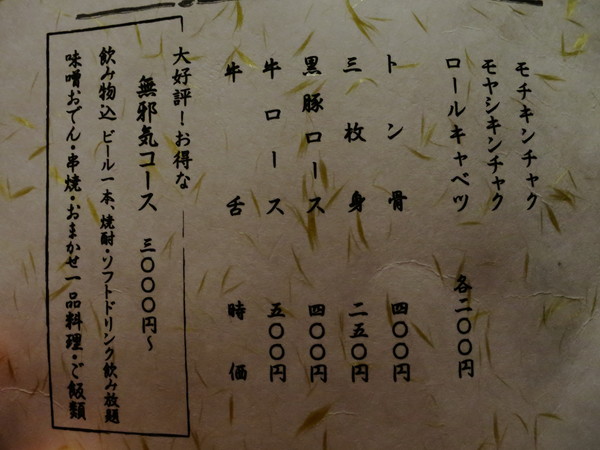 モチキンチャク
モヤシキンチャク
ロールキャベツ 各二〇〇円
トン骨 四〇〇円
三枚身 二五〇円
黒豚ロース 四〇〇円
牛ロース 五〇〇円
牛舌 時価
大好評！お得な
無邪気コース 三〇〇〇円～
飲み物込 ビール一本、焼酎・ソフトドリンク飲み放題
味噌おでん・串焼・おまかせ一品料理・ご飯類